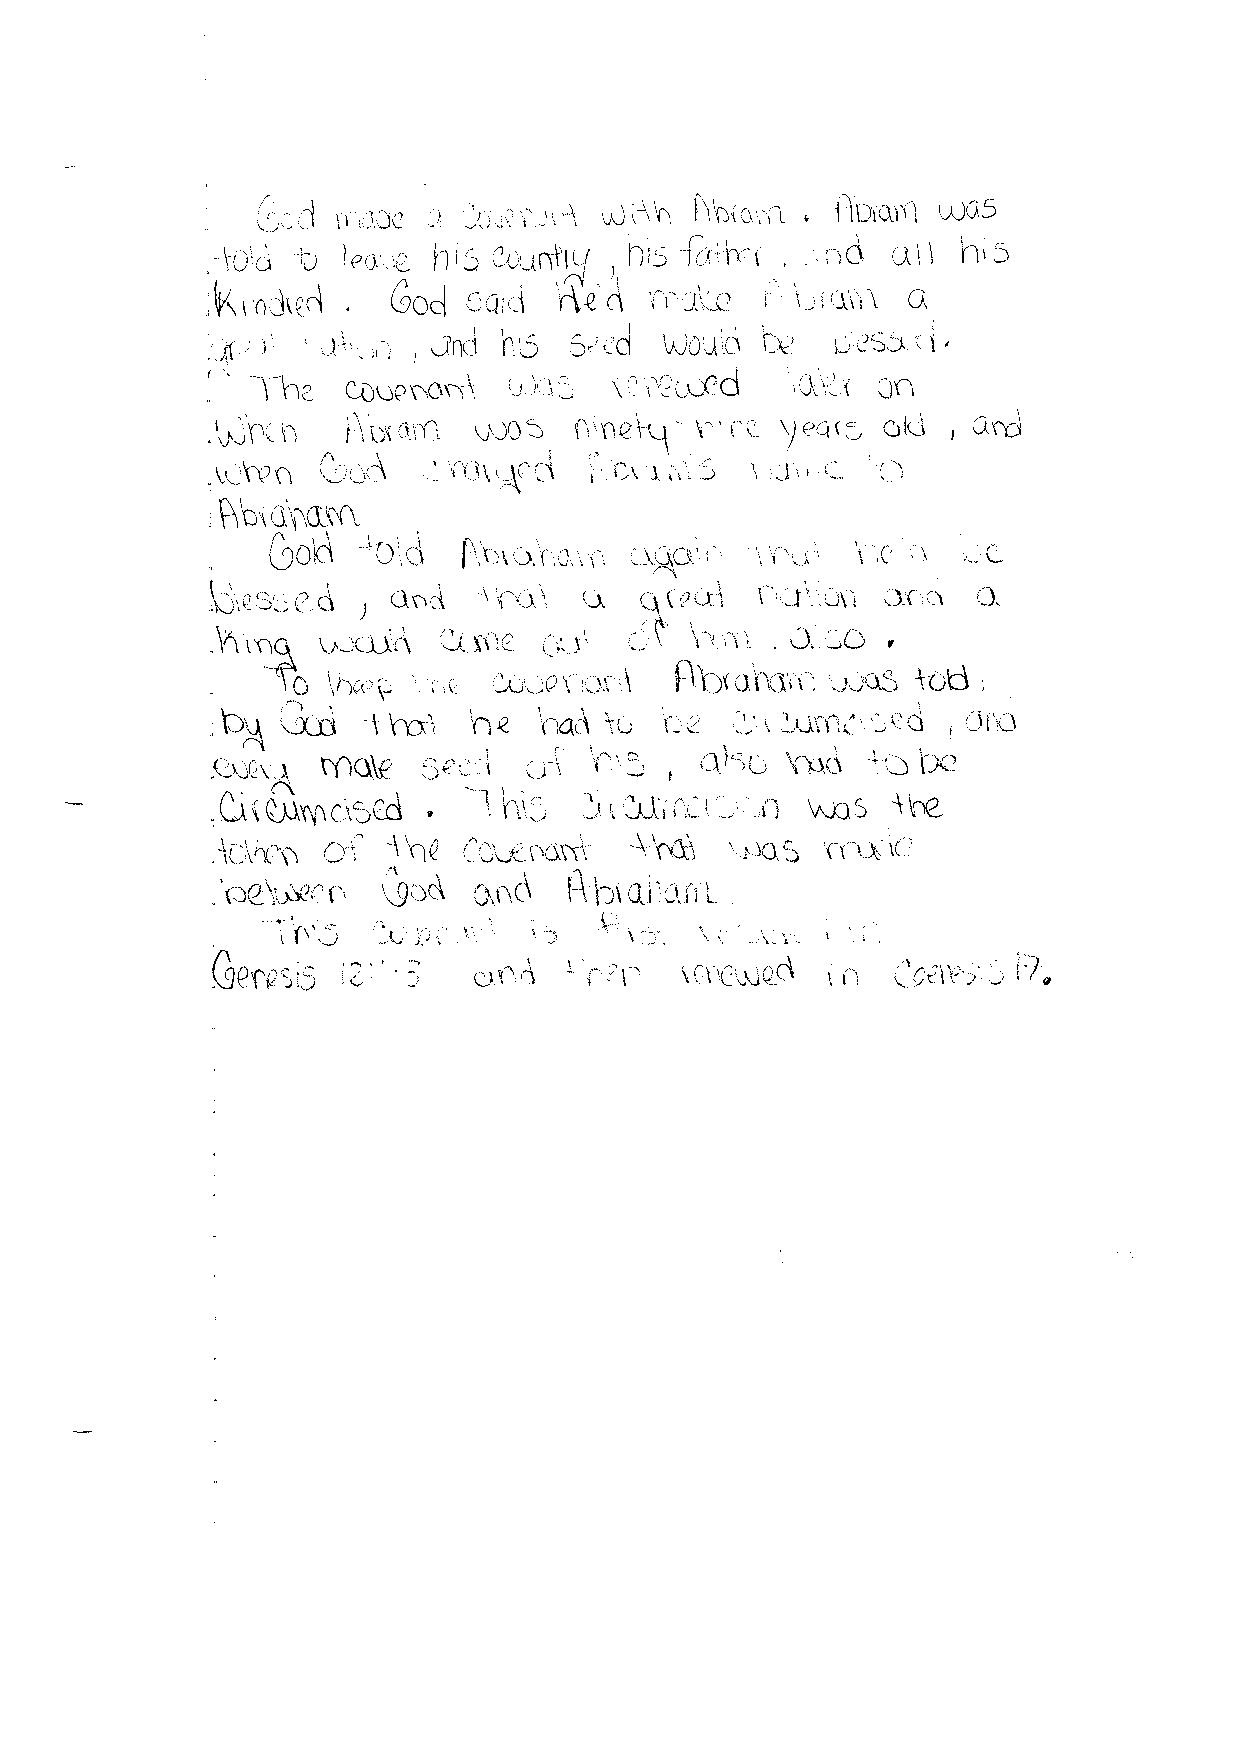 God made a covenant with Abram. Abram was
told to leave his country, his father, and all his
Kindred. God said He'd make Abram a
great nation, and his seed would be blessed.
The covenant was renewed later on
When Abram was ninety-nine years old, and
when God changed Abram's name to
Abraham
Gold told Abraham again that he'd be
blessed, and that a great nation and a
King would come out of him also.
To keep the covenant Abraham was told
by God that he had to be circumcised, and
every male seed of his, also had to be
Circumcised. This circumcision was the
token of the covenant that was made
between God and Abraham.
This covenant is first in
Genesis and then renewed in Genesis 17.